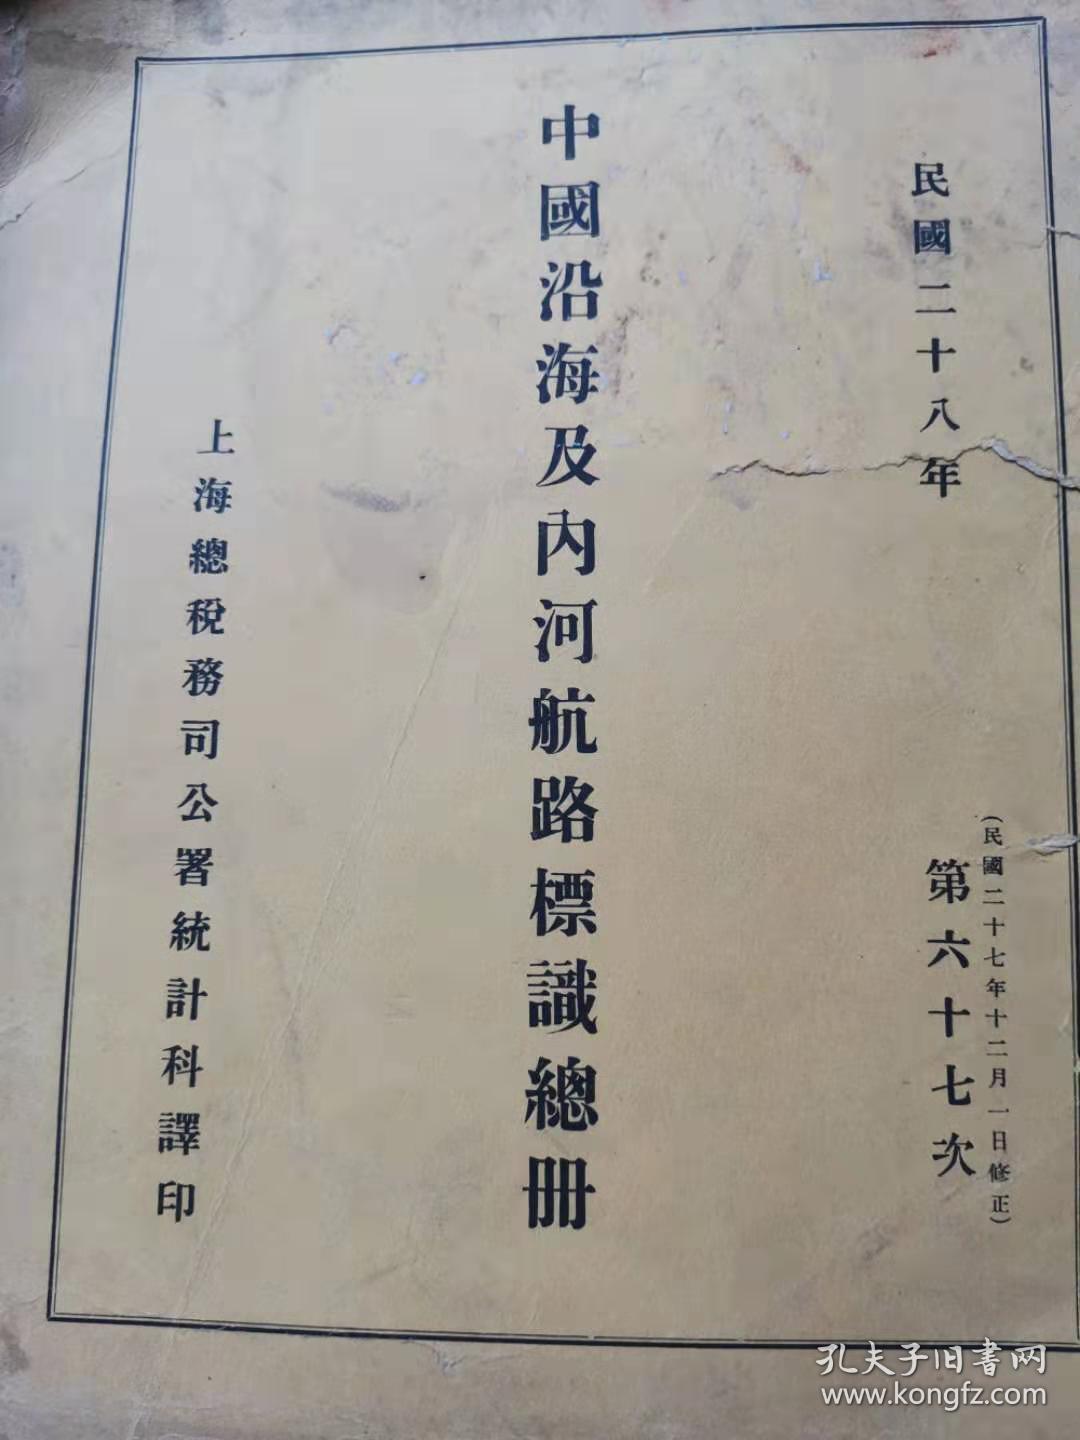 民國二十八年
(民國二十七年十二月一日修正)
第六十七次
中國沿海及內河航路標識總冊
上海總稅務司公署統計科譯印
孔夫子旧書网
www.kongfz.com